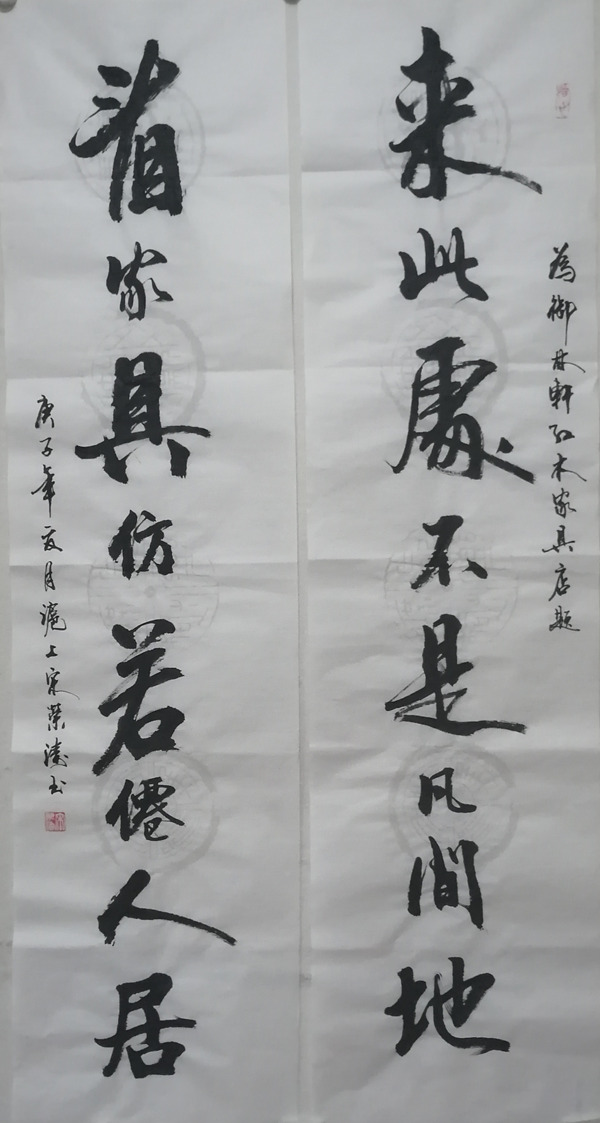 為御林軒紅木家具店題
来此處不是凡間地
看家具仿若僊人居
庚子年夏月滬上宋榮濤书